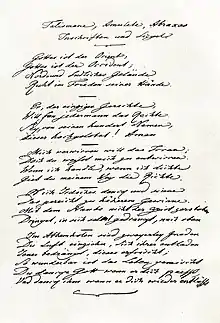 Talismane, Amulete, Abraxas
Inschriften und Siegel
Gottes ist der Orient,
Gottes ist der Occident,
Nord und südliches Gelände
Ruht im Frieden seiner Hände.
Er, der einzige Gerechte,
Will für jedermann das Rechte
Sey, von seinen hundert Namen,
Dieser hochgelobet! Amen
Mich verwirren will das Irren;
Doch du weißt mich zu entwirren.
Wenn ich handle, wenn ich dichte
Gieb du meinem Weg die Richte.
Ob ich Irdisches denk und sinne
Das gereicht zu höherem Gewinne.
Mit dem Staube nicht der Geist zerstoben
Dringet, in sich selbst gedrängt, nach oben
Im Athemholen sind zweyerley Gnaden
Die Luft einziehen, sich ihrer entladen
Jenes bedrängt, dieses erfrischt;
So wunderbar ist das Leben gemischt
Du danke Gott wenn er dich preßt
Und danke ihm wenn er dich wieder entläßt